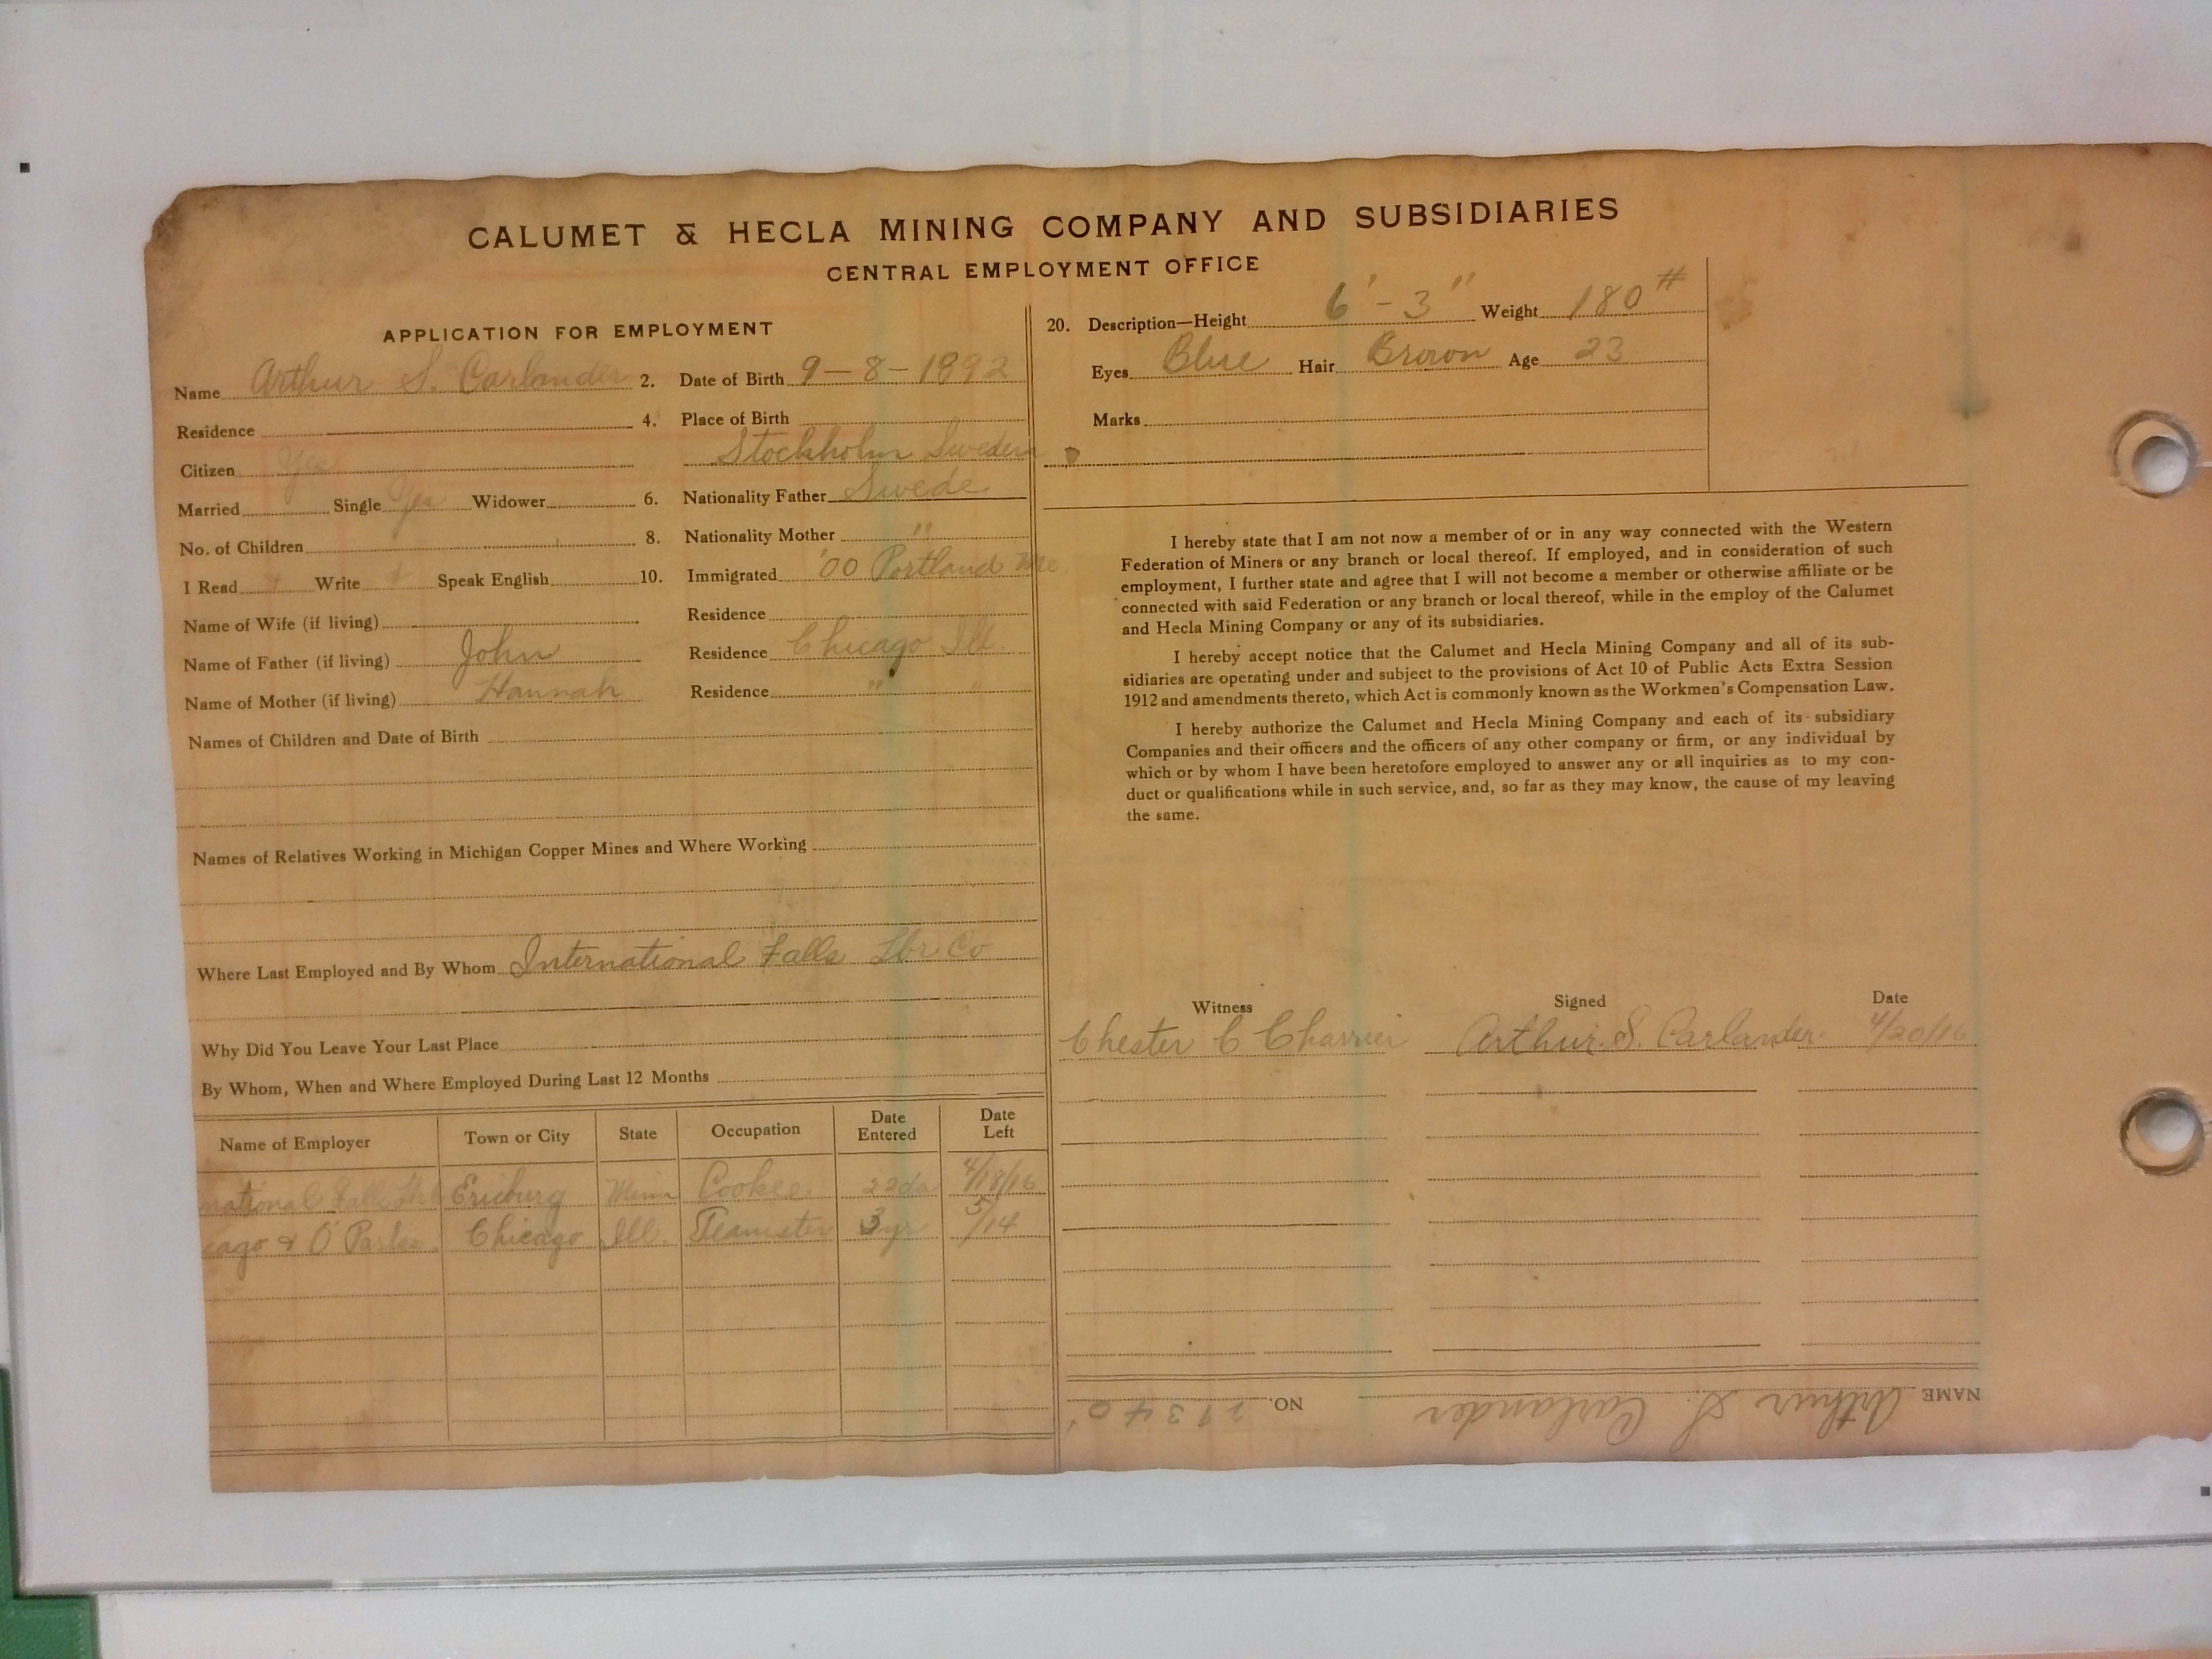 CALUMET & HECLA MINING COMPANY AND SUBSIDIARIES
CENTRAL EMPLOYMENT OFFICE
APPLICATION FOR EMPLOYMENT
Name Arthur S. Carlander 2. Date of Birth 9-8-1892
Residence 4. Place of Birth
Citizen Yes Stockholm Sweden
Married Single Yes Widower 6. Nationality Father Swede
No. of Children 8. Nationality Mother "
I Read Write Speak English 10. Immigrated '00 Portland Me
Name of Wife (if living) Residence
Name of Father (if living) John Residence Chicago Ill.
Name of Mother (if living) Hannah Residence " "
Names of Children and Date of Birth
Names of Relatives Working in Michigan Copper Mines and Where Working
Where Last Employed and By Whom International Falls Lbr Co
Why Did You Leave Your Last Place
By Whom, When and Where Employed During Last 12 Months
Name of Employer Town or City State Occupation Date Entered Date Left
national Falls Ericburg Minn Cookee 22da 4/18/16
cago & O' Chicago Ill. Teamster 3yr 5/14
20. Description—Height 6'-3" Weight 180#
Eyes Blue Hair Brown Age 23
Marks
I hereby state that I am not now a member of or in any way connected with the Western
Federation of Miners or any branch or local thereof. If employed, and in consideration of such
employment, I further state and agree that I will not become a member or otherwise affiliate or be
connected with said Federation or any branch or local thereof, while in the employ of the Calumet
and Hecla Mining Company or any of its subsidiaries.
I hereby accept notice that the Calumet and Hecla Mining Company and all of its sub-
sidiaries are operating under and subject to the provisions of Act 10 of Public Acts Extra Session
1912 and amendments thereto, which Act is commonly known as the Workmen's Compensation Law.
I hereby authorize the Calumet and Hecla Mining Company and each of its subsidiary
Companies and their officers and the officers of any other company or firm, or any individual by
which or by whom I have been heretofore employed to answer any or all inquiries as to my con-
duct or qualifications while in such service, and, so far as they may know, the cause of my leaving
the same.
Witness Signed Date
Chester C Arthur. S. Carlander. 4/20/16
NAME Arthur S. Carlander NO.